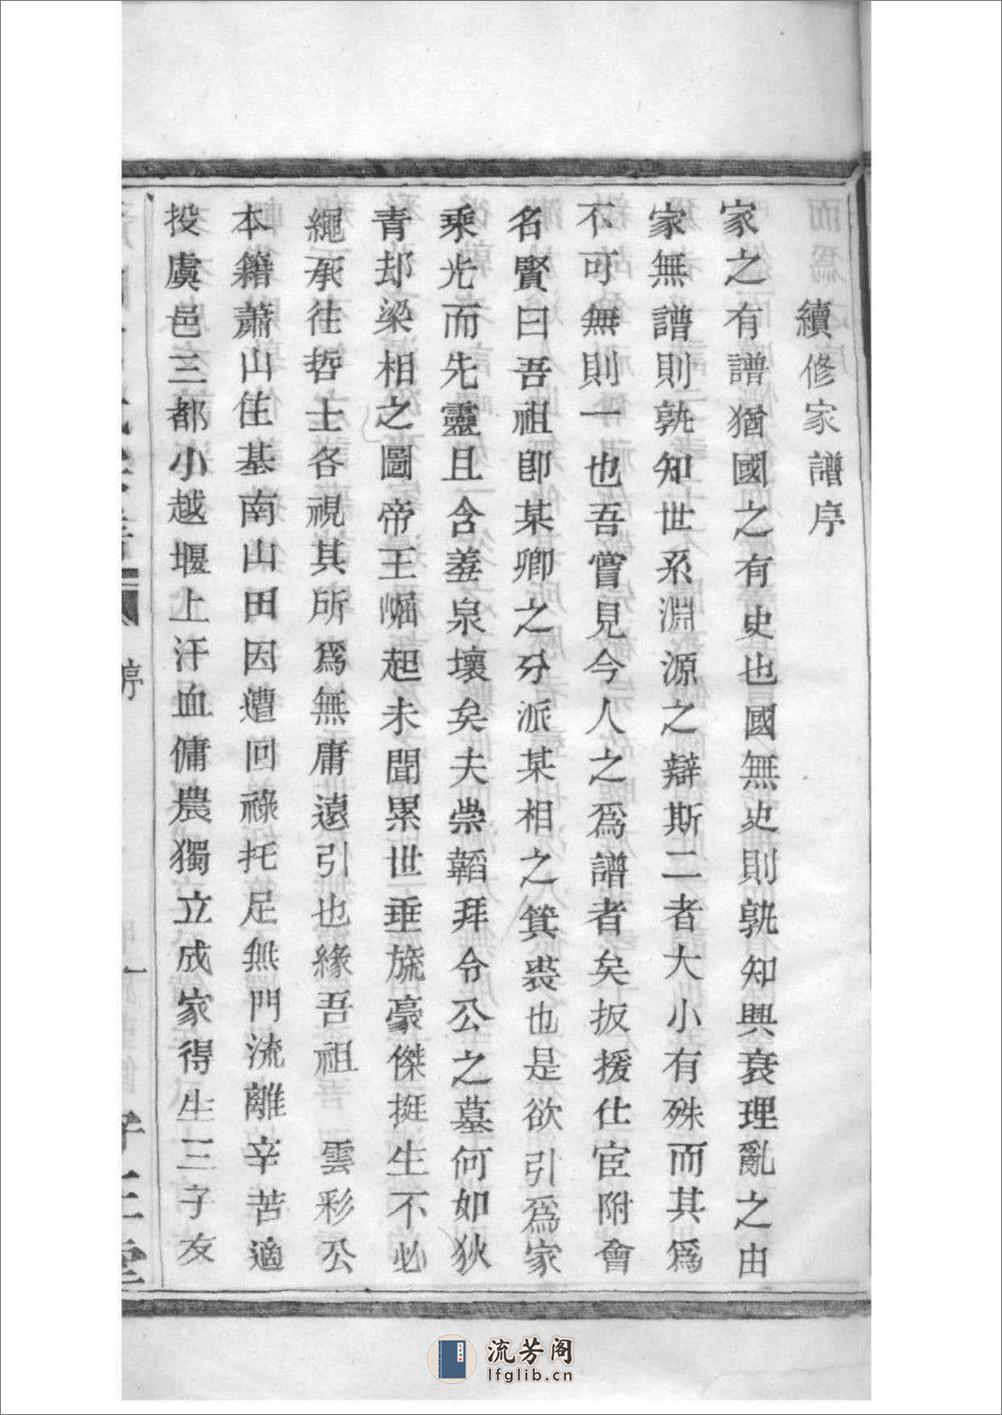 續修家譜序
家之有譜猶國之有史也國無史則孰知興衰理亂之由
家無譜則孰知世系淵源之辯斯二者大小有殊而其爲
不可無則一也吾嘗見今人之爲譜者矣扳援仕宦附會
名賢曰吾祖卽某卿之分派某相之箕裘也是欲引爲家
乘光而先靈且含羞泉壤矣夫崇韜拜令公之墓何如狄
青却梁相之圖帝王崛起未聞累世垂旒豪傑挺生不必
繩承往哲士各視其所爲無庸遠引也緣吾祖 雲彩公
本籍蕭山住基南山田因遭回祿托足無門流離辛苦適
投虞邑三都小越堰上汗血傭農獨立成家得生三子友
序
一
流芳阁
lfglib.cn